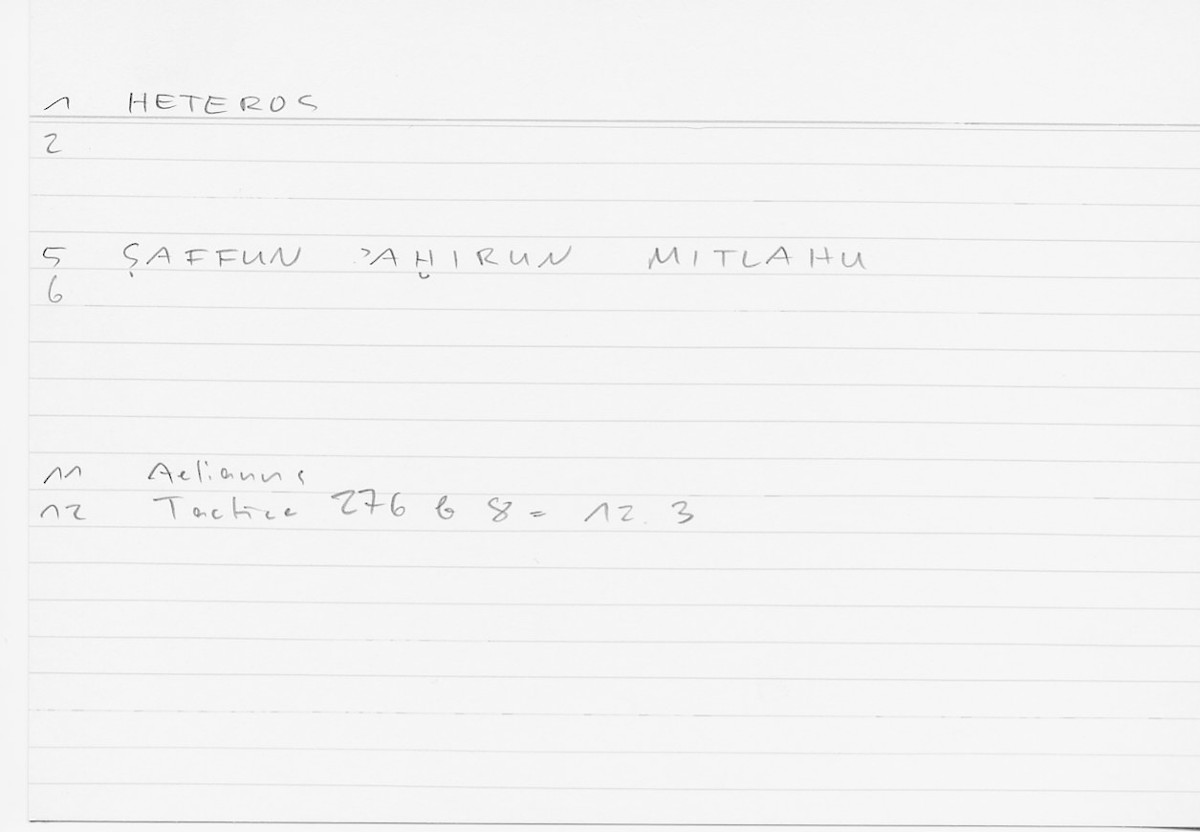 1 HETEROS
2
5 ṢAFFUN ʾAḪIRUN MITLAHU
6
11 Aelianus
12 Tactica 276 b 8 = 12.3